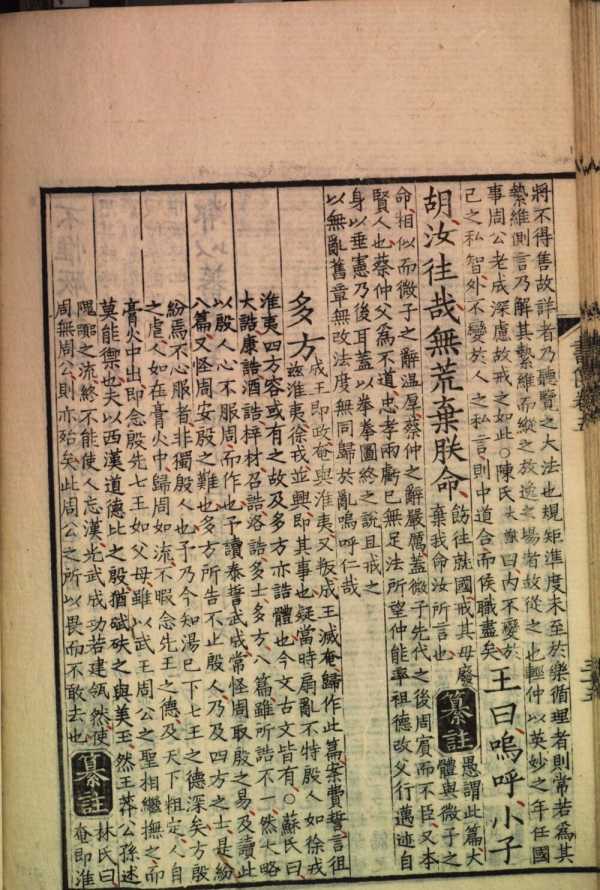 將不得售故詳者乃聽覽之大法也規矩準度末至於樂循理者則常若爲其
縶維側言乃解其縶維而縱之放逸之場者故從之也輕仲以英妙之年任國
事周公老成深慮故戒之如此○陳氏大猷曰內不變於
己之私智外不變於人之私言則中道合而侯職盡矣
王曰嗚呼小子
胡汝往哉無荒棄朕命
飭往就國戒其毋廢
棄我命汝所言也
纂註
愚謂此篇大
體與微子之
命相似而微子之辭溫厚蔡仲之辭嚴厲蓋微子先代之後周賓而不臣又本
賢人也蔡仲父爲不道忠孝兩虧已無足法所望仲能率祖德改父行邁迹自
身以垂憲乃後耳蓋以拳拳圖終之說且戒之
以無亂舊章無改法度無同歸於亂嗚呼仁哉
多方
成王即政奄與淮夷又叛成王滅奄歸作此篇案費誓言徂
茲淮夷徐戎並興即其事也疑當時扇亂不特殷人如徐戎
淮夷四方容或有之故及多方亦誥體也今文古文皆有○蘇氏曰
大誥康誥酒誥梓材召誥洛誥多士多方八篇雖所誥不一然大略
以殷人心不服周而作也予讀泰誓武成常怪周取殷之易及讀此
八篇又怪周安殷之難也多方所告不止殷人乃及四方之士是紛
紛焉不心服者非獨殷人也予乃今知湯已下七王之德深矣方殷
之虐人如在膏火中歸周如流不暇念先王之德及天下粗定人自
膏火中出即念殷先七王如父母雖以武王周公之聖相繼撫之而
莫能禦也夫以西漢道德比之殷猶碔砆之與美玉然王莽公孫述
隗囂之流終不能使人忘漢光武成功若建瓴然使
周無周公則亦殆矣此周公之所以畏而不敢去也
纂註
林氏曰
奄即淮